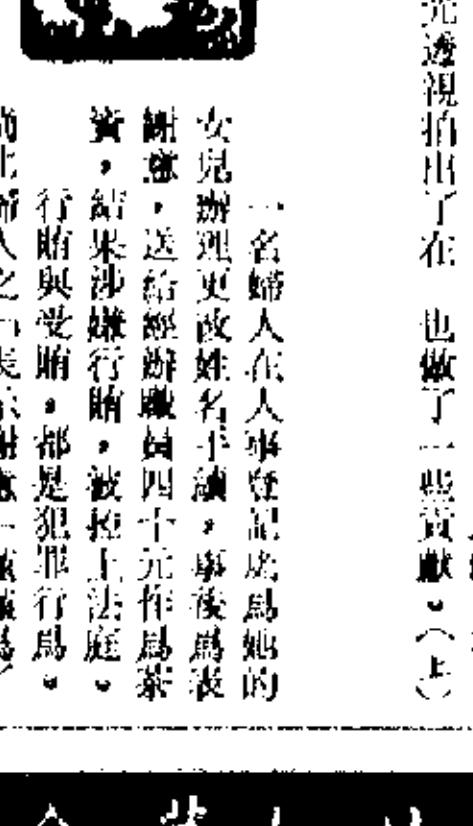 透視拍出了在 也做了一些貢獻。(上)
一名婦人在人事登記處爲她的
女兒辦理更改姓名手續,事後爲表
謝意,送給經辦職員四十元作爲茶
資,結果涉嫌行賄,被控上法庭。
行賄與受賄,都是犯罪行爲。
婦人之